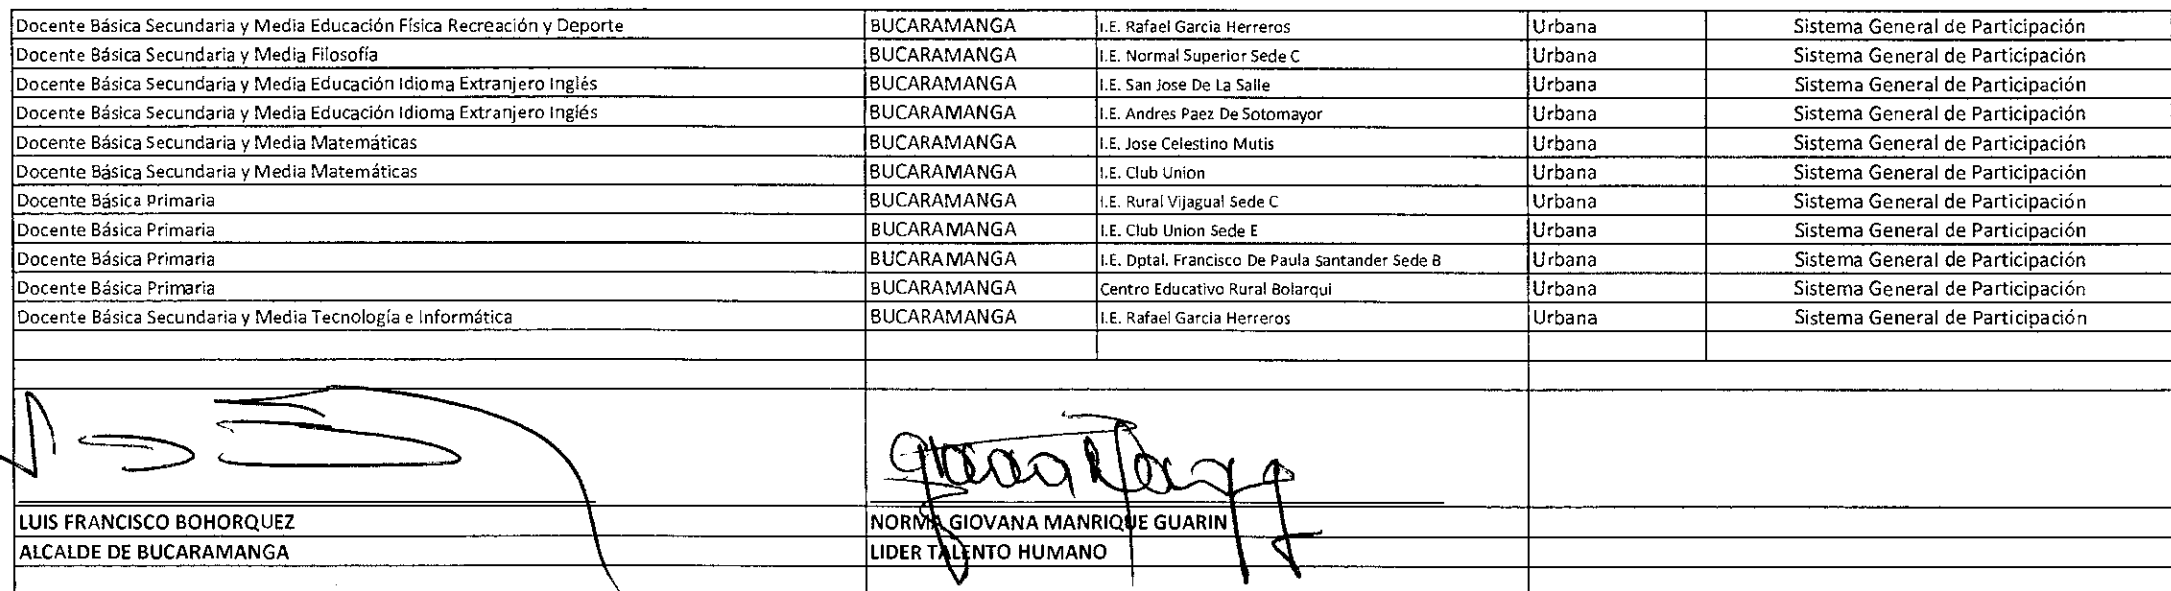 Docente Básica Secundaria y Media Educación Física Recreación y Deporte BUCARAMANGA I.E. Rafael Garcia Herreros Urbana Sistema General de Participación
Docente Básica Secundaria y Media Filosofía BUCARAMANGA I.E. Normal Superior Sede C Urbana Sistema General de Participación
Docente Básica Secundaria y Media Educación Idioma Extranjero Inglés BUCARAMANGA I.E. San Jose De La Salle Urbana Sistema General de Participación
Docente Básica Secundaria y Media Educación Idioma Extranjero Inglés BUCARAMANGA I.E. Andres Paez De Sotomayor Urbana Sistema General de Participación
Docente Básica Secundaria y Media Matemáticas BUCARAMANGA I.E. Jose Celestino Mutis Urbana Sistema General de Participación
Docente Básica Secundaria y Media Matemáticas BUCARAMANGA I.E. Club Union Urbana Sistema General de Participación
Docente Básica Primaria BUCARAMANGA I.E. Rural Vijagual Sede C Urbana Sistema General de Participación
Docente Básica Primaria BUCARAMANGA I.E. Club Union Sede E Urbana Sistema General de Participación
Docente Básica Primaria BUCARAMANGA I.E. Dptal. Francisco De Paula Santander Sede B Urbana Sistema General de Participación
Docente Básica Primaria BUCARAMANGA Centro Educativo Rural Bolarqui Urbana Sistema General de Participación
Docente Básica Secundaria y Media Tecnología e Informática BUCARAMANGA I.E. Rafael Garcia Herreros Urbana Sistema General de Participación
LUIS FRANCISCO BOHORQUEZ NORMA GIOVANA MANRIQUE GUARIN
ALCALDE DE BUCARAMANGA LIDER TALENTO HUMANO